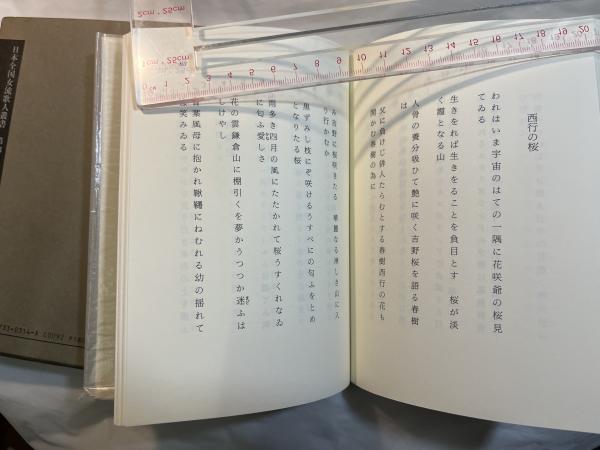 西行の桜
われはいま宇宙のはての一隅に花咲爺の桜見
てゐる
生きをれば生きをることを負目とす 桜が淡
く靉となる山
人骨の養分吸ひて艶に咲く吉野桜を語る春樹
は
父に負けじ俳人たらむとする春樹西行の花も
聞かむ春樹の為に
み吉野に桜咲きたる 華麗なる淋しき山に入
り行かむか
黒ずみし枝にぞ咲けるうすべにの匂ふをとめ
となりたる桜
雨多き四月の風にたたかれて桜うすくれなゐ
に匂ふ愛しさ
花の雲鎌倉山に棚引くを夢かうつつか迷ふは
しけやし
葉風母に抱かれ鞦韆にねむれる幼の揺れて
笑みゐる
日本全国女流歌人叢書
2cm×.25cm
1cm×.25cm
0 1 2 3 4 5 6 7 8 9 10 11 12 13 14 15 16 17 18 19 20
733-0314-A C0092